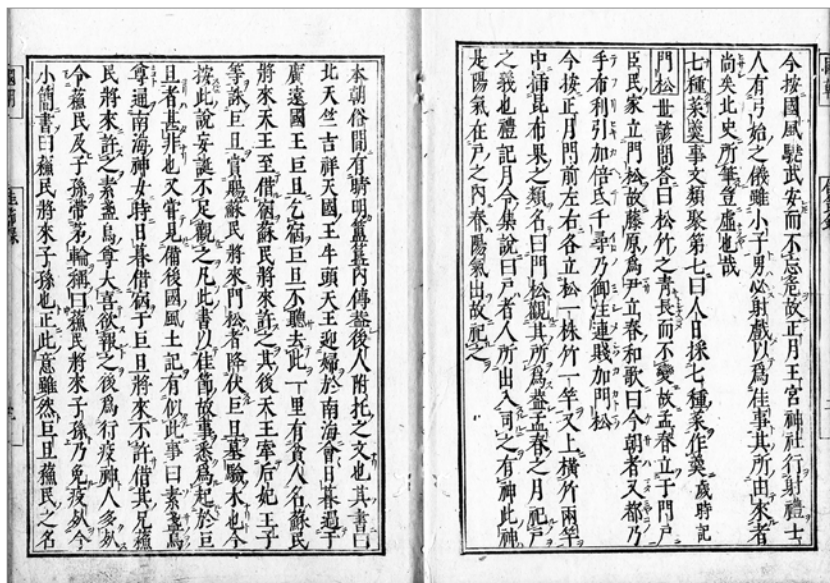 今按國風尚武安而不忘危故正月王宮神社行射禮士
人有弓始之儀雖小子男必射戲以爲佳事其所由來者
尚矣北史所筆豈虛也哉
七種菜羹事文類聚第七曰人日採七種菜作羹歲時記
門松世諺問答曰松竹之靑長而不變故孟春立于門戶
臣民家立門松故藤原爲尹立春和歌曰今朝者又都乃
手布利引加倍氐千尋乃御注連賤加門松
今按正月門前左右各立松一株竹一竿又上橫竹兩竿
中揷昆布果之類名曰門松觀其所爲蓋孟春之月祀戶
之義也禮記月令集說曰戶者人所出入司之有神此神
是陽氣在戶之內春陽氣出故祀之
本朝俗間有晴明簠簋內傳蓋後人附托之文也其書曰
北天竺吉祥天國王牛頭天王迎婦於南海會日暮過于
廣遠國王巨旦乞宿巨旦不聽去此一里有貧人名蘇民
將來天王至借宿蘇民將來許之其後天王率后妃王子
等誅巨旦賞賜蘇民將來門松者降伏巨旦墓驗木也今
按此說妄誕不足觀之凡此書以佳節故事悉爲起於巨
旦者甚非也又嘗見備後國風土記有似此事曰素盞烏
尊通南海神女時日暮借宿于巨旦將來不許借其兄蘓
民將來許之素盞烏尊大喜欲報之後爲行疫神人多夘
令蘓民及子孫帶茅輪稱曰蘓民將來子孫乃免疫夘今
小簡書曰蘓民將來子孫也正此意雖然巨旦蘓民之名